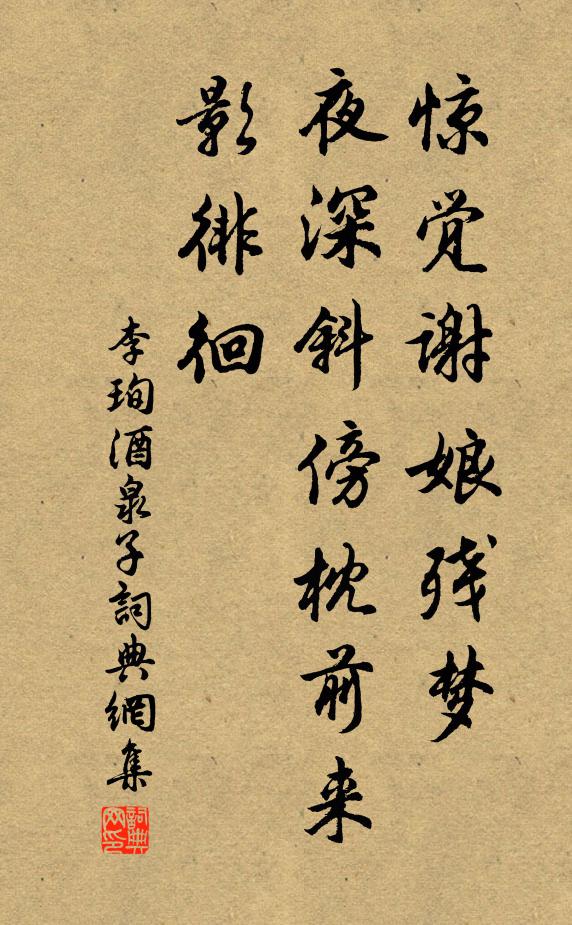 惊觉谢娘残梦
夜深斜傍枕前来
影徘徊
李珣酒泉子詞典網集
詞典网印